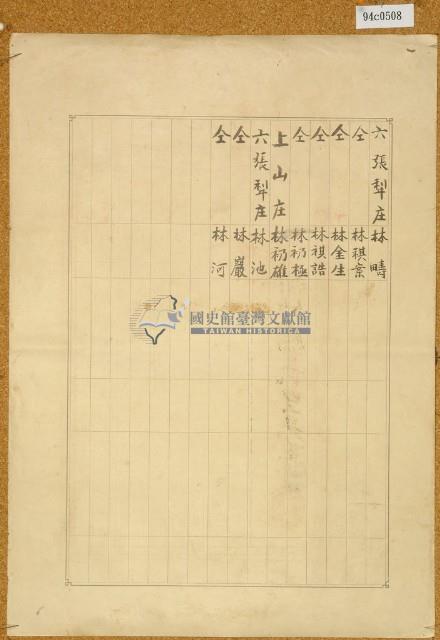 94c0508
六張犁庄 林疇
仝 林祺案
仝 林金生
仝 林祺誥
仝 林礽極
上山庄 林礽雄
六張犁庄 林池
仝 林巖
仝 林河
國史館臺灣文獻館
TAIWAN HISTORICA